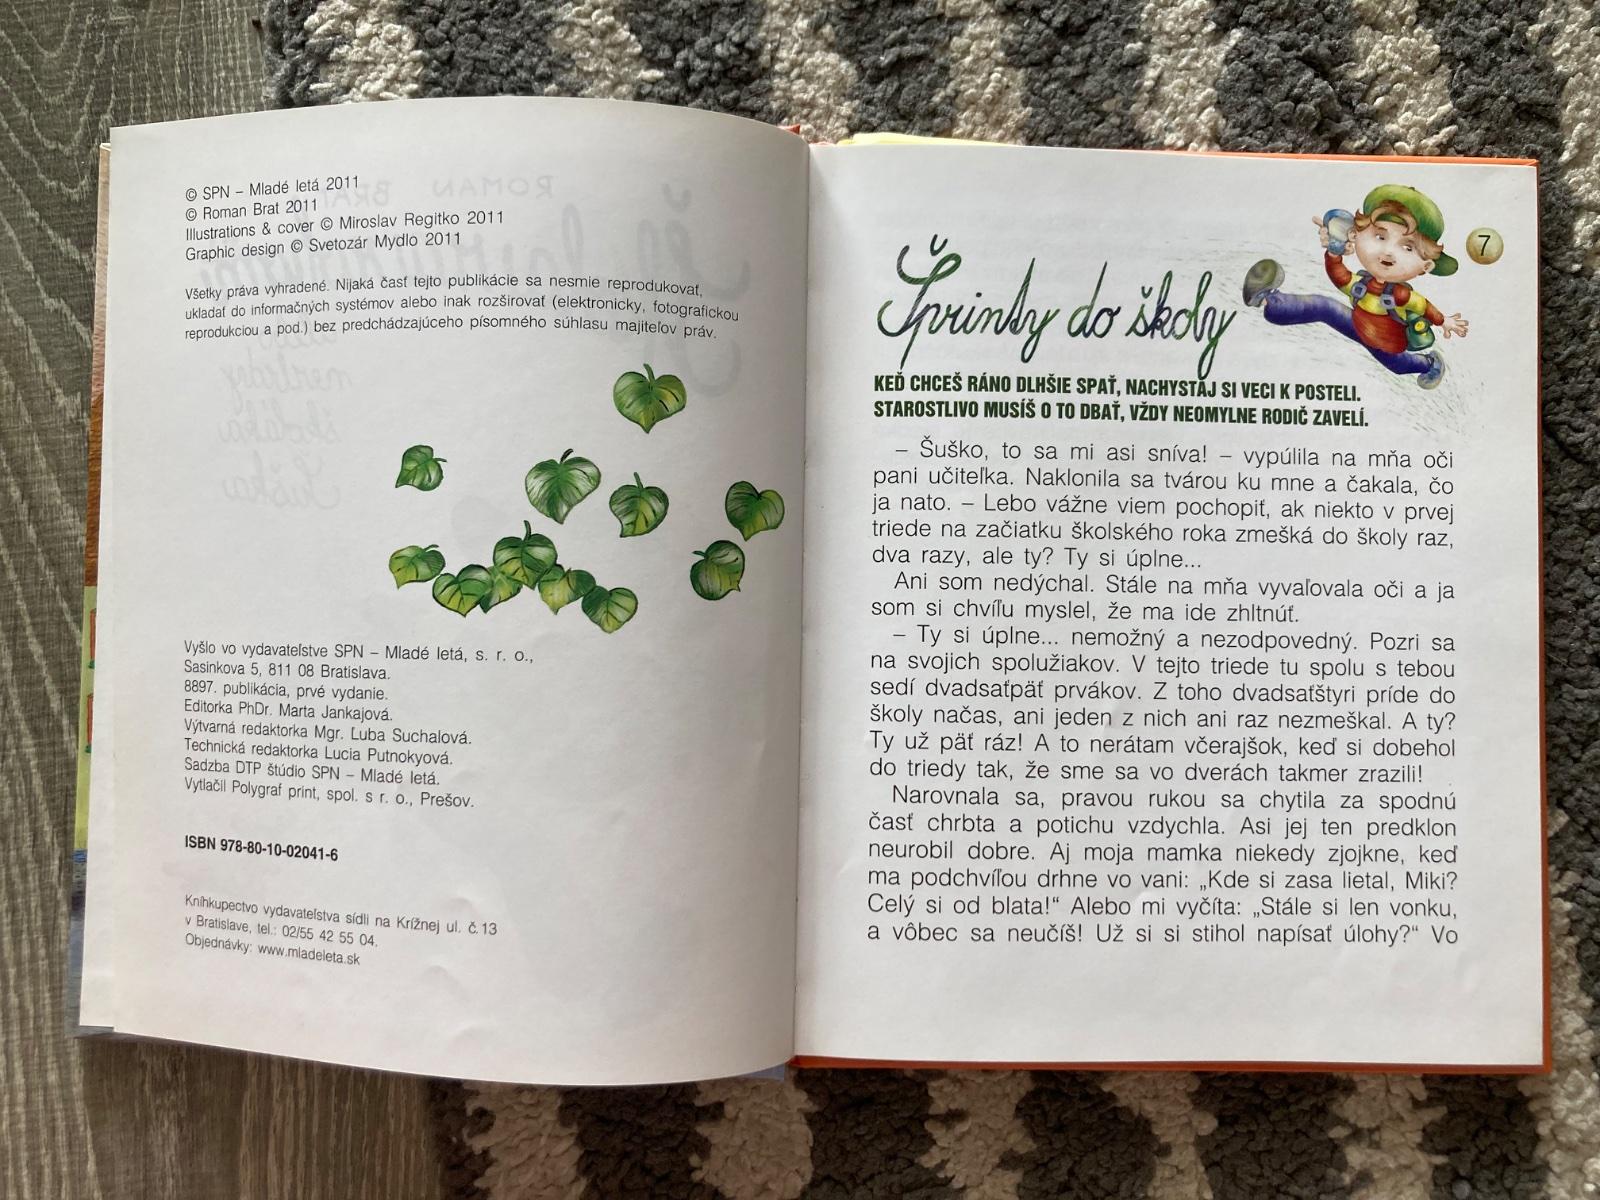 © SPN – Mladé letá 2011
© Roman Brat 2011
Illustrations & cover © Miroslav Regitko 2011
Graphic design © Svetozár Mydlo 2011
Všetky práva vyhradené. Nijaká časť tejto publikácie sa nesmie reprodukovať,
ukladať do informačných systémov alebo inak rozširovať (elektronicky, fotografickou
reprodukciou a pod.) bez predchádzajúceho písomného súhlasu majiteľov práv.
Vyšlo vo vydavateľstve SPN – Mladé letá, s. r. o.,
Sasinkova 5, 811 08 Bratislava.
8897. publikácia, prvé vydanie.
Editorka PhDr. Marta Jankajová.
Výtvarná redaktorka Mgr. Luba Suchalová.
Technická redaktorka Lucia Putnokyová.
Sadzba DTP štúdio SPN – Mladé letá.
Vytlačil Polygraf print, spol. s r. o., Prešov.
ISBN 978-80-10-02041-6
Kníhkupectvo vydavateľstva sídli na Krížnej ul. č. 13
v Bratislave, tel.: 02/55 42 55 04.
Objednávky: www.mladeleta.sk
7
Šprinty do školy
KEĎ CHCEŠ RÁNO DLHŠIE SPAŤ, NACHYSTAJ SI VECI K POSTELI.
STAROSTLIVO MUSÍŠ O TO DBAŤ, VŽDY NEOMYLNE RODIČ ZAVELÍ.
– Šuško, to sa mi asi sníva! – vypúlila na mňa oči
pani učiteľka. Naklonila sa tvárou ku mne a čakala, čo
ja nato. – Lebo vážne viem pochopiť, ak niekto v prvej
triede na začiatku školského roka zmešká do školy raz,
dva razy, ale ty? Ty si úplne...
Ani som nedýchal. Stále na mňa vyvaľovala oči a ja
som si chvíľu myslel, že ma ide zhltnúť.
– Ty si úplne... nemožný a nezodpovedný. Pozri sa
na svojich spolužiakov. V tejto triede tu spolu s tebou
sedí dvadsaťpäť prvákov. Z toho dvadsaťštyri príde do
školy načas, ani jeden z nich ani raz nezmeškal. A ty?
Ty už päť ráz! A to nerátam včerajšok, keď si dobehol
do triedy tak, že sme sa vo dverách takmer zrazili!
Narovnala sa, pravou rukou sa chytila za spodnú
časť chrbta a potichu vzdychla. Asi jej ten predklon
neurobil dobre. Aj moja mamka niekedy zjojkne, keď
ma podchvíľou drhne vo vani: „Kde si zasa lietal, Miki?
Celý si od blata!“ Alebo mi vyčíta: „Stále si len vonku,
a vôbec sa neučíš! Už si si stihol napísať úlohy?“ Vo